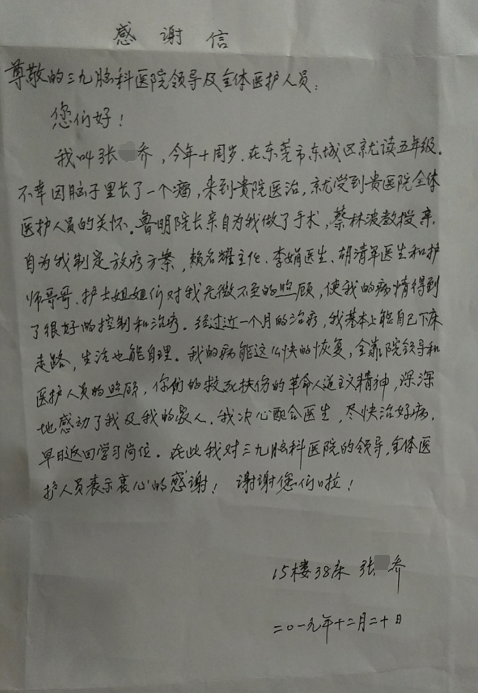 感谢信
尊敬的三九脑科医院领导及全体医护人员：
您们好！
我叫张 乔，今年十周岁。在东莞市东城区就读五年级。
不幸因脑子里长了一个瘤，来到贵院医治，就受到贵医院全体
医护人员的关怀。鲁明院长亲自为我做了手术，蔡林波教授亲
自为我制定放疗方案，赖名耀主任、李娟医生、胡清军医生和护
师哥哥、护士姐姐们对我无微不至的照顾，使我的病情得到
了很好的控制和治疗。经过近一个月的治疗，我基本上能自己下床
走路，生活也能自理。我的病能这么快的恢复，全靠院领导和
医护人员的照顾，你们的救死扶伤的革命人道主义精神，深深
地感动了我及我的家人。我决心配合医生，尽快治好病，
早日返回学习岗位。在此我对三九脑科医院的领导，全体医
护人员表示衷心的感谢！谢谢您们啦！
15楼38床 张 乔
二〇一九年十二月二十日